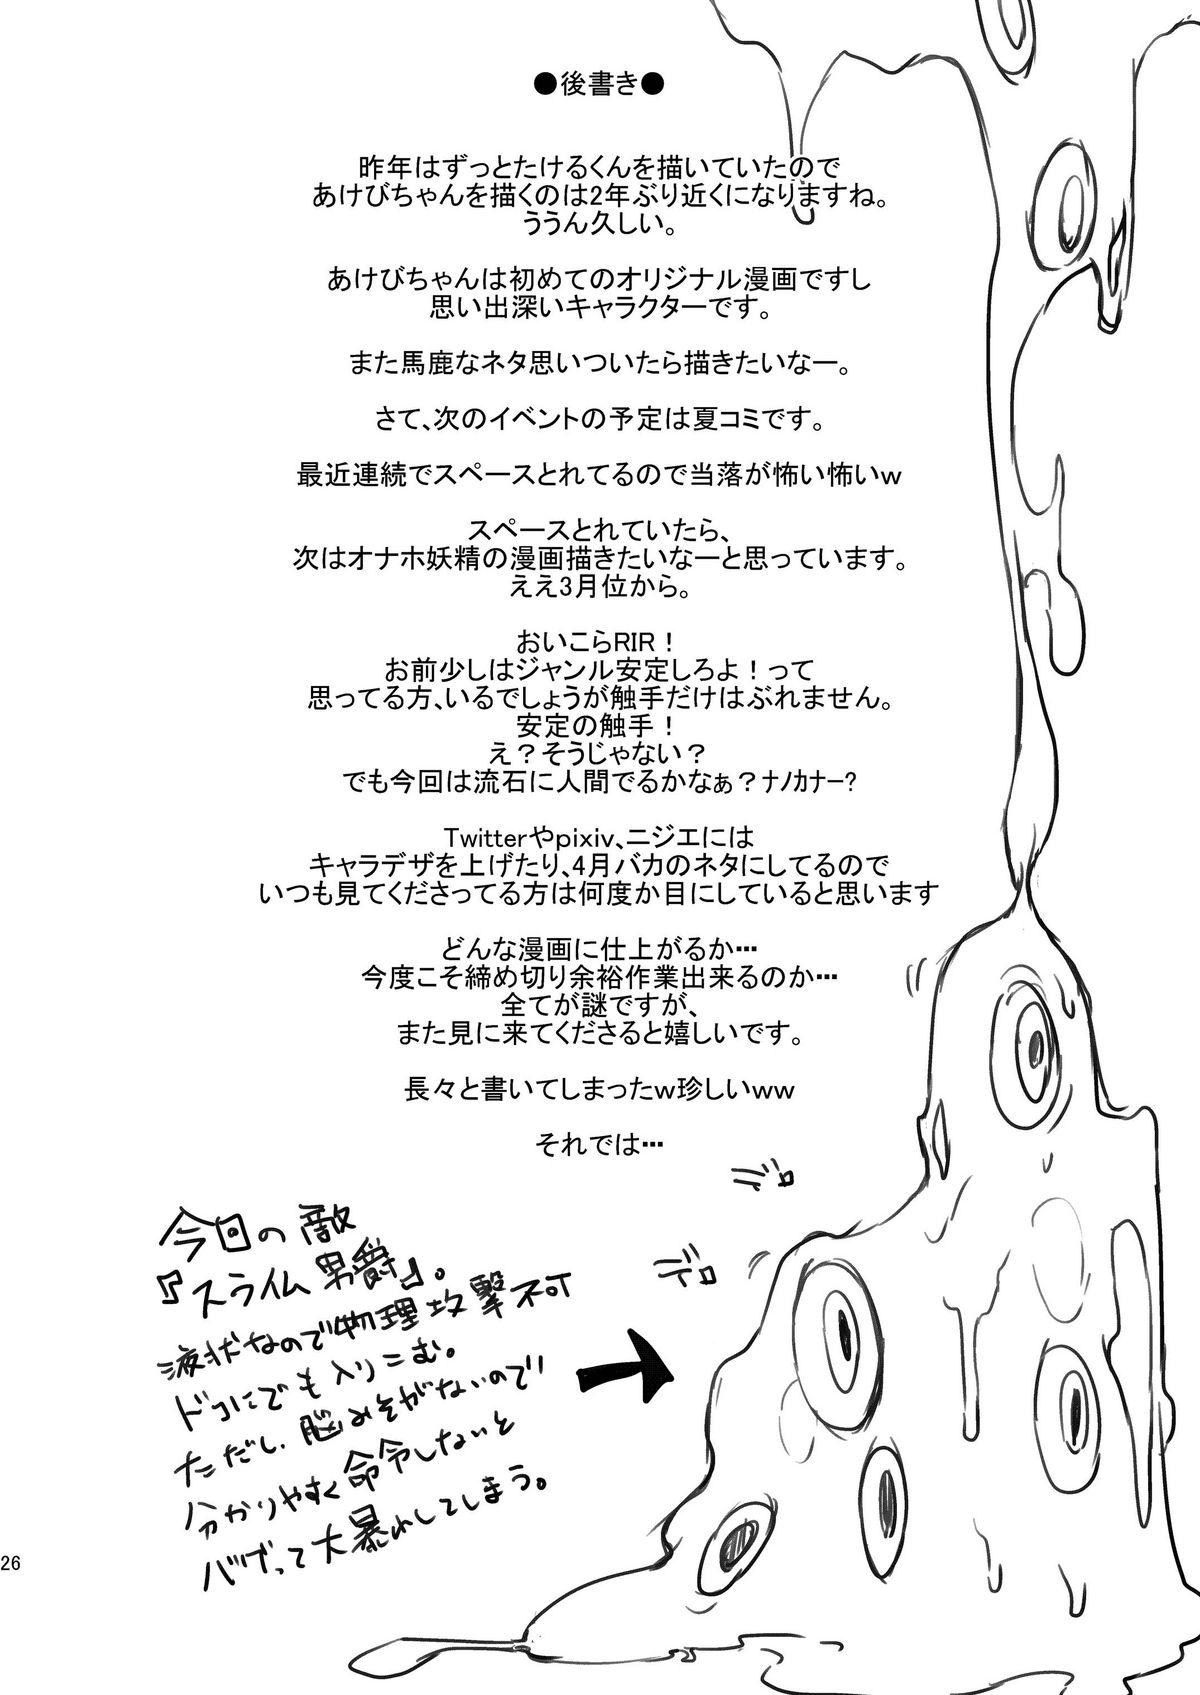 ●後書き●
昨年はずっとたけるくんを描いていたので
あけびちゃんを描くのは2年ぶり近くになりますね。
ううん久しい。
あけびちゃんは初めてのオリジナル漫画ですし
思い出深いキャラクターです。
また馬鹿なネタ思いついたら描きたいなー。
さて、次のイベントの予定は夏コミです。
最近連続でスペースとれてるので当落が怖い怖いｗ
スペースとれていたら、
次はオナホ妖精の漫画描きたいなーと思っています。
ええ3月位から。
おいこらRIR！
お前少しはジャンル安定しろよ！って
思ってる方、いるでしょうが触手だけはぶれません。
安定の触手！
え？そうじゃない？
でも今回は流石に人間でるかなぁ？ﾅﾉｶﾅｰ?
Twitterやpixiv、ニジエには
キャラデザを上げたり、4月バカのネタにしてるので
いつも見てくださってる方は何度か目にしていると思います
どんな漫画に仕上がるか…
今度こそ締め切り余裕作業出来るのか…
全てが謎ですが、
また見に来てくださると嬉しいです。
長々と書いてしまったｗ珍しいｗｗ
それでは…
ジロ
ジロ
今日の敵
『スライム男爵』。
液状なので物理攻撃不可
ドコにでも入りこむ。
ただし、脳みそがないので
分かりやすく命令しないと
バグって大暴れしてしまう。
26